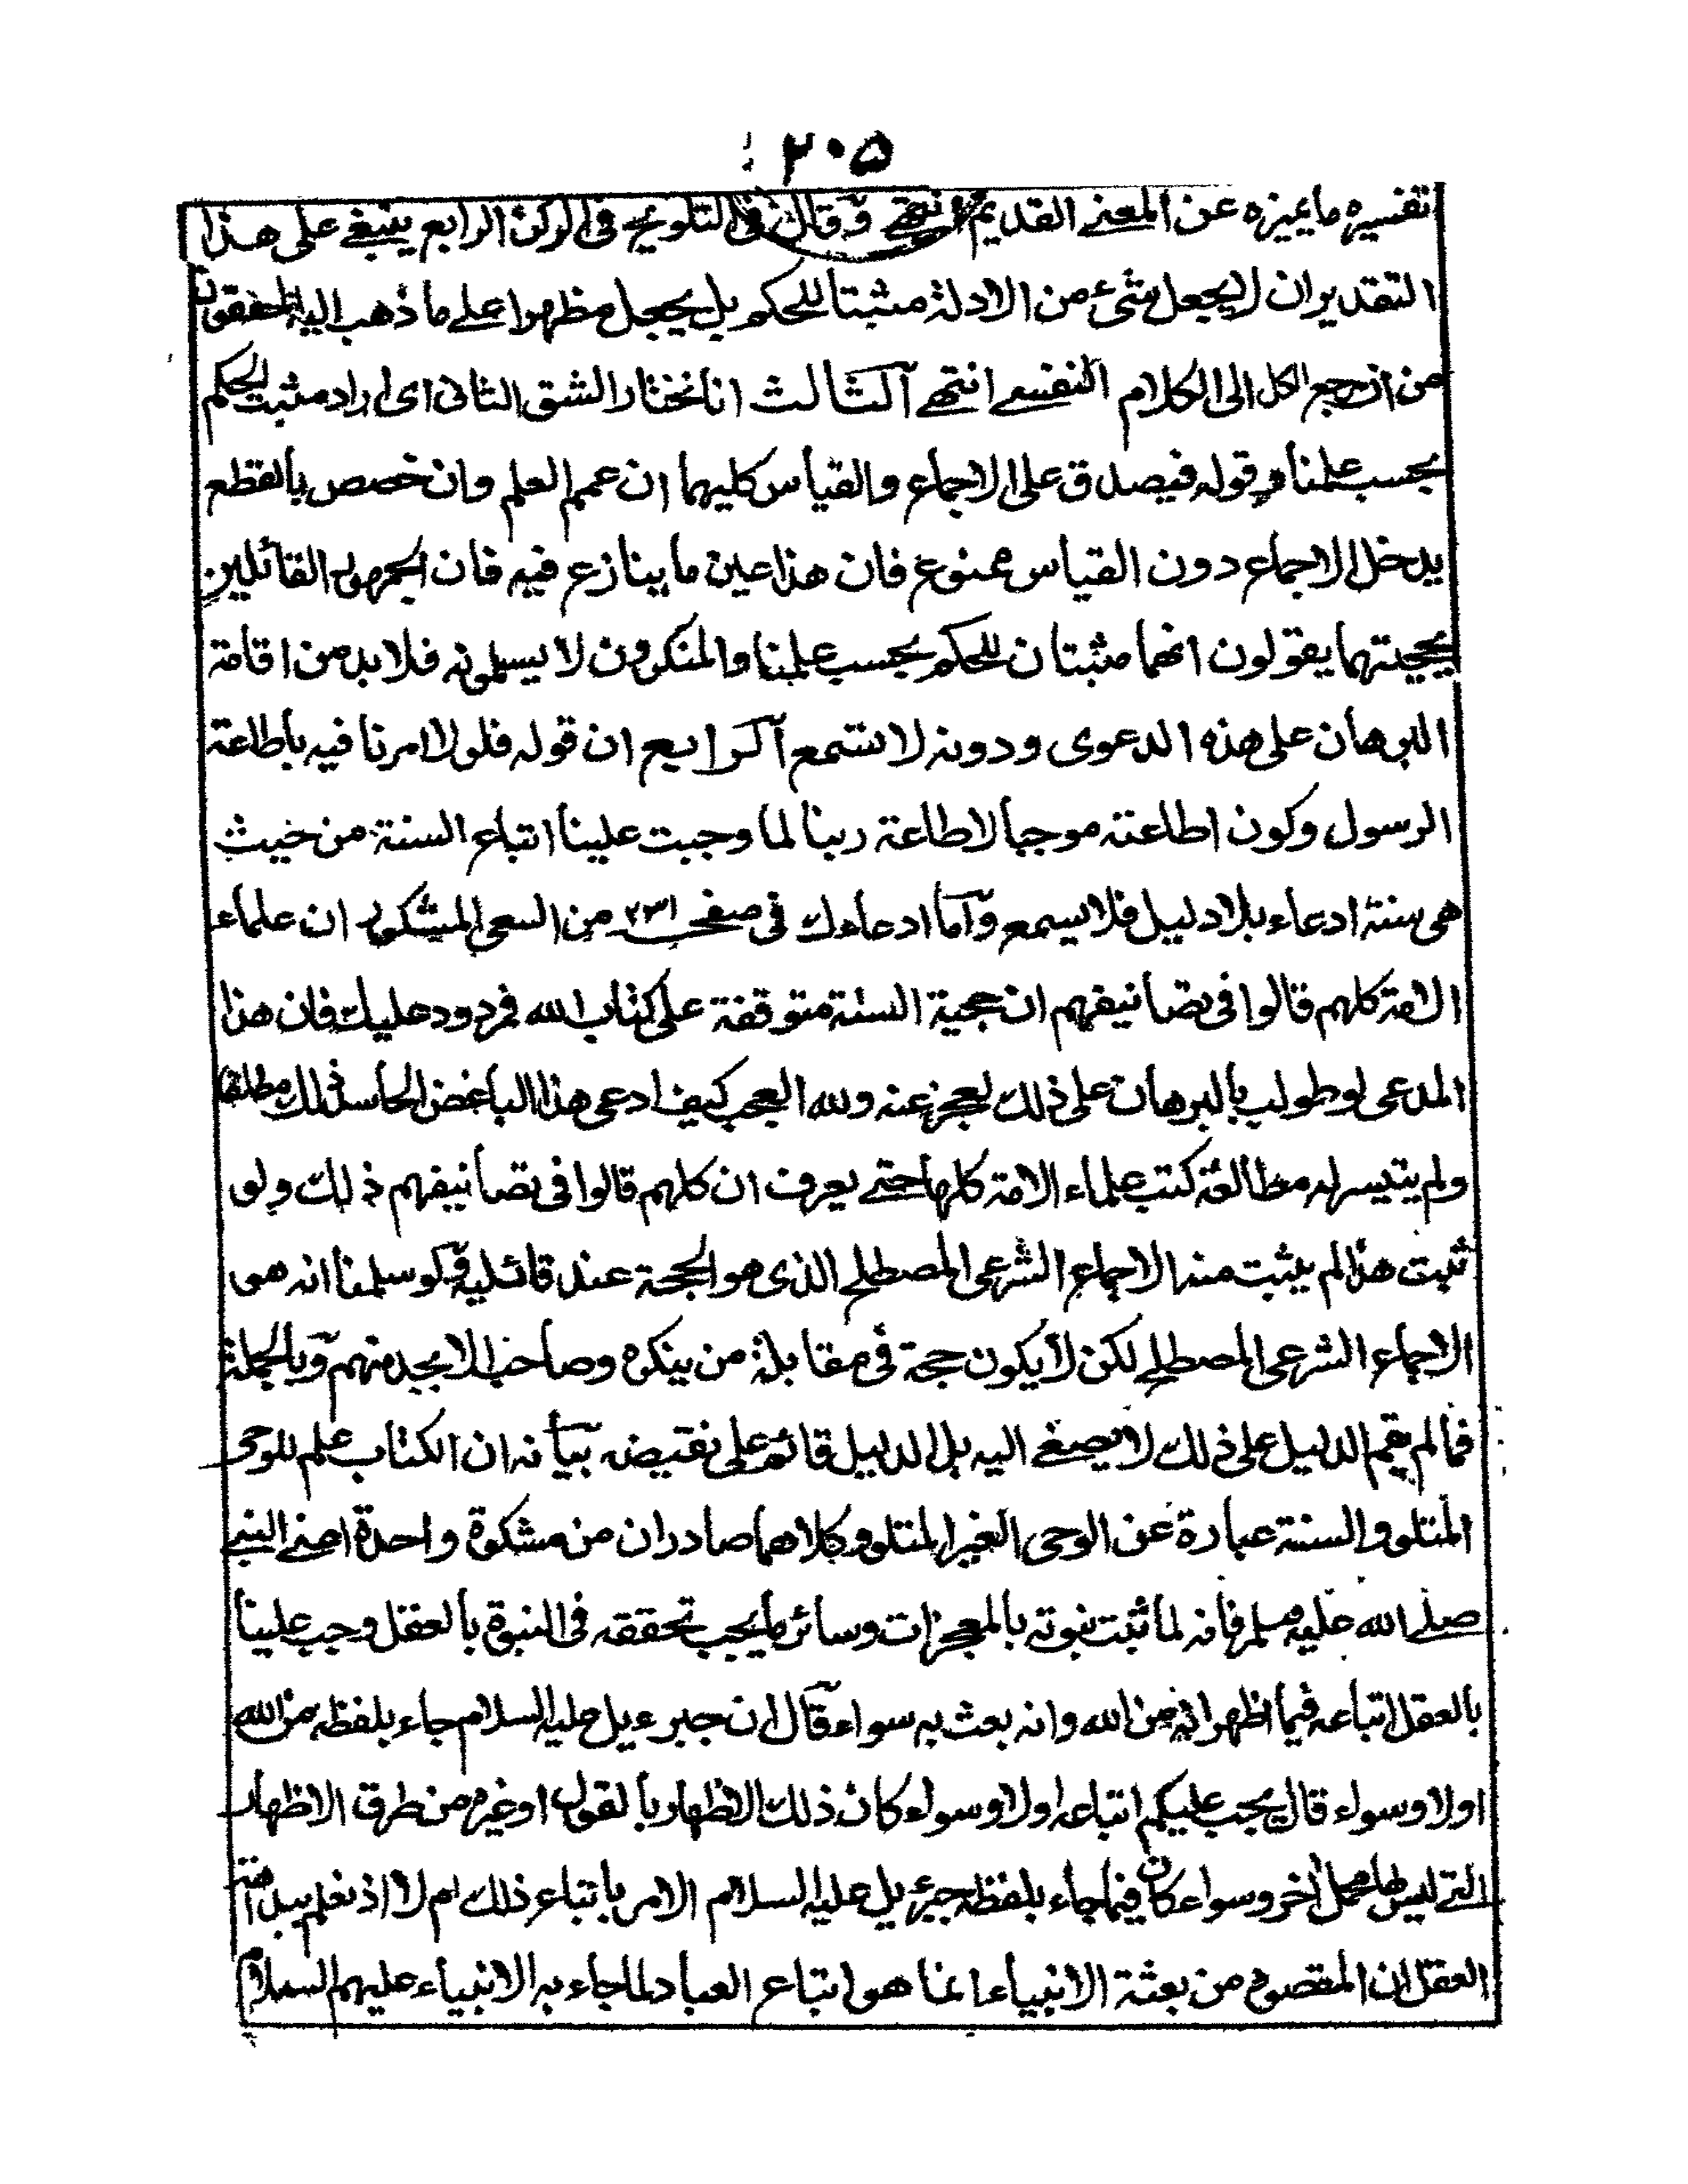 ٢٠٥
تفسيره ما يميزه عن المعنے القديم انتهے وقال فى التلويح فى الركن الرابع ينبغے على هذا
التقدير ان لا يجعل شئ من الادلة مثبتا للحكم بل يجعل مظهرا علے ما ذهب اليه المحققون
من ان مرجع الكل الى الكلام النفسے انتهے الثالث انا نختار الشق الثانى اى اراد مثبت الحكم
بحسب علمنا وقوله فيصدق على الاجماع والقياس كليهما ان عمم العلم وان خصص بالقطع
يدخل الاجماع دون القياس ممنوع فان هذا عين ما ينازع فيه فان الجمهور القائلين
بحجيتهما يقولون انهما مثبتان للحكم بحسب علمنا والمنكرون لا يسلمونه فلا بد من اقامة
البرهان على هذه الدعوى ودونه لا تستمع الرابع ان قوله فلولا امرنا فيه باطاعة
الرسول وكون اطاعته موجبا لاطاعة ربنا لما وجبت علينا اتباع السنة من حيث
هى سنة ادعاء بلا دليل فلا يسمع واما ادعاءك فى صفحہ ٢٣١ من السعى المشكور ان علماء
الامة كلهم قالوا فى تصانيفهم ان حجية السنة متوقفة على كتاب الله فمردود عليك فان هذا
المدعى لو طولب بالبرهان على ذلك لعجز عنه ولله العجب كيف ادعى هذا الباغض الحاسد ذلك مطلقا
ولم يتيسر له مطالعة كتب علماء الامة كلها حتے يعرف ان كلهم قالوا فى تصانيفهم ذلك ولو
ثبت هذا لم يثبت منه الاجماع الشرعى المصطلح الذى هو الحجة عند قائليه ولو سلمنا انه هى
الاجماع الشرعى المصطلح لكن لا يكون حجة فى مقابلة من ينكره وصاحب الابجد منهم وبالجملة
فما لم يقم الدليل على ذلك لا يصغے اليه بل الدليل قائم على نقيضه بيانه ان الكتاب علم للوحى
المتلو والسنة عبارة عن الوحى الغير المتلو وكلاهما صادران من مشكوة واحدة اعنے النبے
صلے الله عليه وسلم فانه لما ثبت نبوته بالمعجزات وسائر ما يجب تحققه فى النبوة بالعقل وجب علينا
بالعقل اتباعه فيما اظهر انه من الله وانه بعث به سواء قال ان جبرءيل عليه السلام جاء بلفظه من الله
اولا وسواء قال يجب عليكم اتباعه اولا وسواء كان ذلك الاظهار بالقول او غيره من طرق الاظهار
التے ليس لها محمل اخر وسواء كان فيما جاء بلفظه جبرئيل عليه السلام الامر باتباع ذلك ام لا اذ نعلم ببداهة
العقل ان المقصود من بعثة الانبياء انما هو اتباع العباد لما جاء به الانبياء عليهم السلام